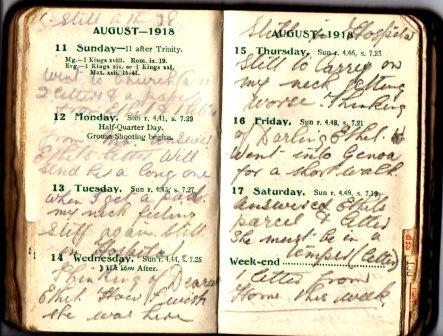 Still in the 38
AUGUST—1918
11 Sunday—11 after Trinity.
Mg.—1 Kings xviii. Rom. ix. 19.
Evg.—1 Kings xix. or 1 Kings xxi.
Mat. xxii. 15-41.
went to church
2 letters & paper
from
12 Monday. Sun r. 4.41, s. 7.29
Half-Quarter Day.
Grouse Shooting begins.
from
Ethels letter Will
send her a long one
13 Tuesday. s. 7.27
when I get a pad.
my neck feeling
stiff again. Still
in Hospital
14 Wednesday. Sun r. 4.44, s. 7.25
After.
Thinking of Dear
Ethel How I wish
she was here
Still in Hospital
AUGUST—1918
15 Thursday. Sun r. 4.46, s. 7.23
Still to carry on
my neck getting
worse. Thinking
16 Friday. Sun r. 4.48, s. 7.21
of Darling Ethel.
went into Genoa
for a short walk
17 Saturday. Sun r. 4.49, s. 7.19
Answered Ethels
parcel & letter
She must be in a
temper (letter)
Week-end
1 letter from
Home this week
SEP
OCT